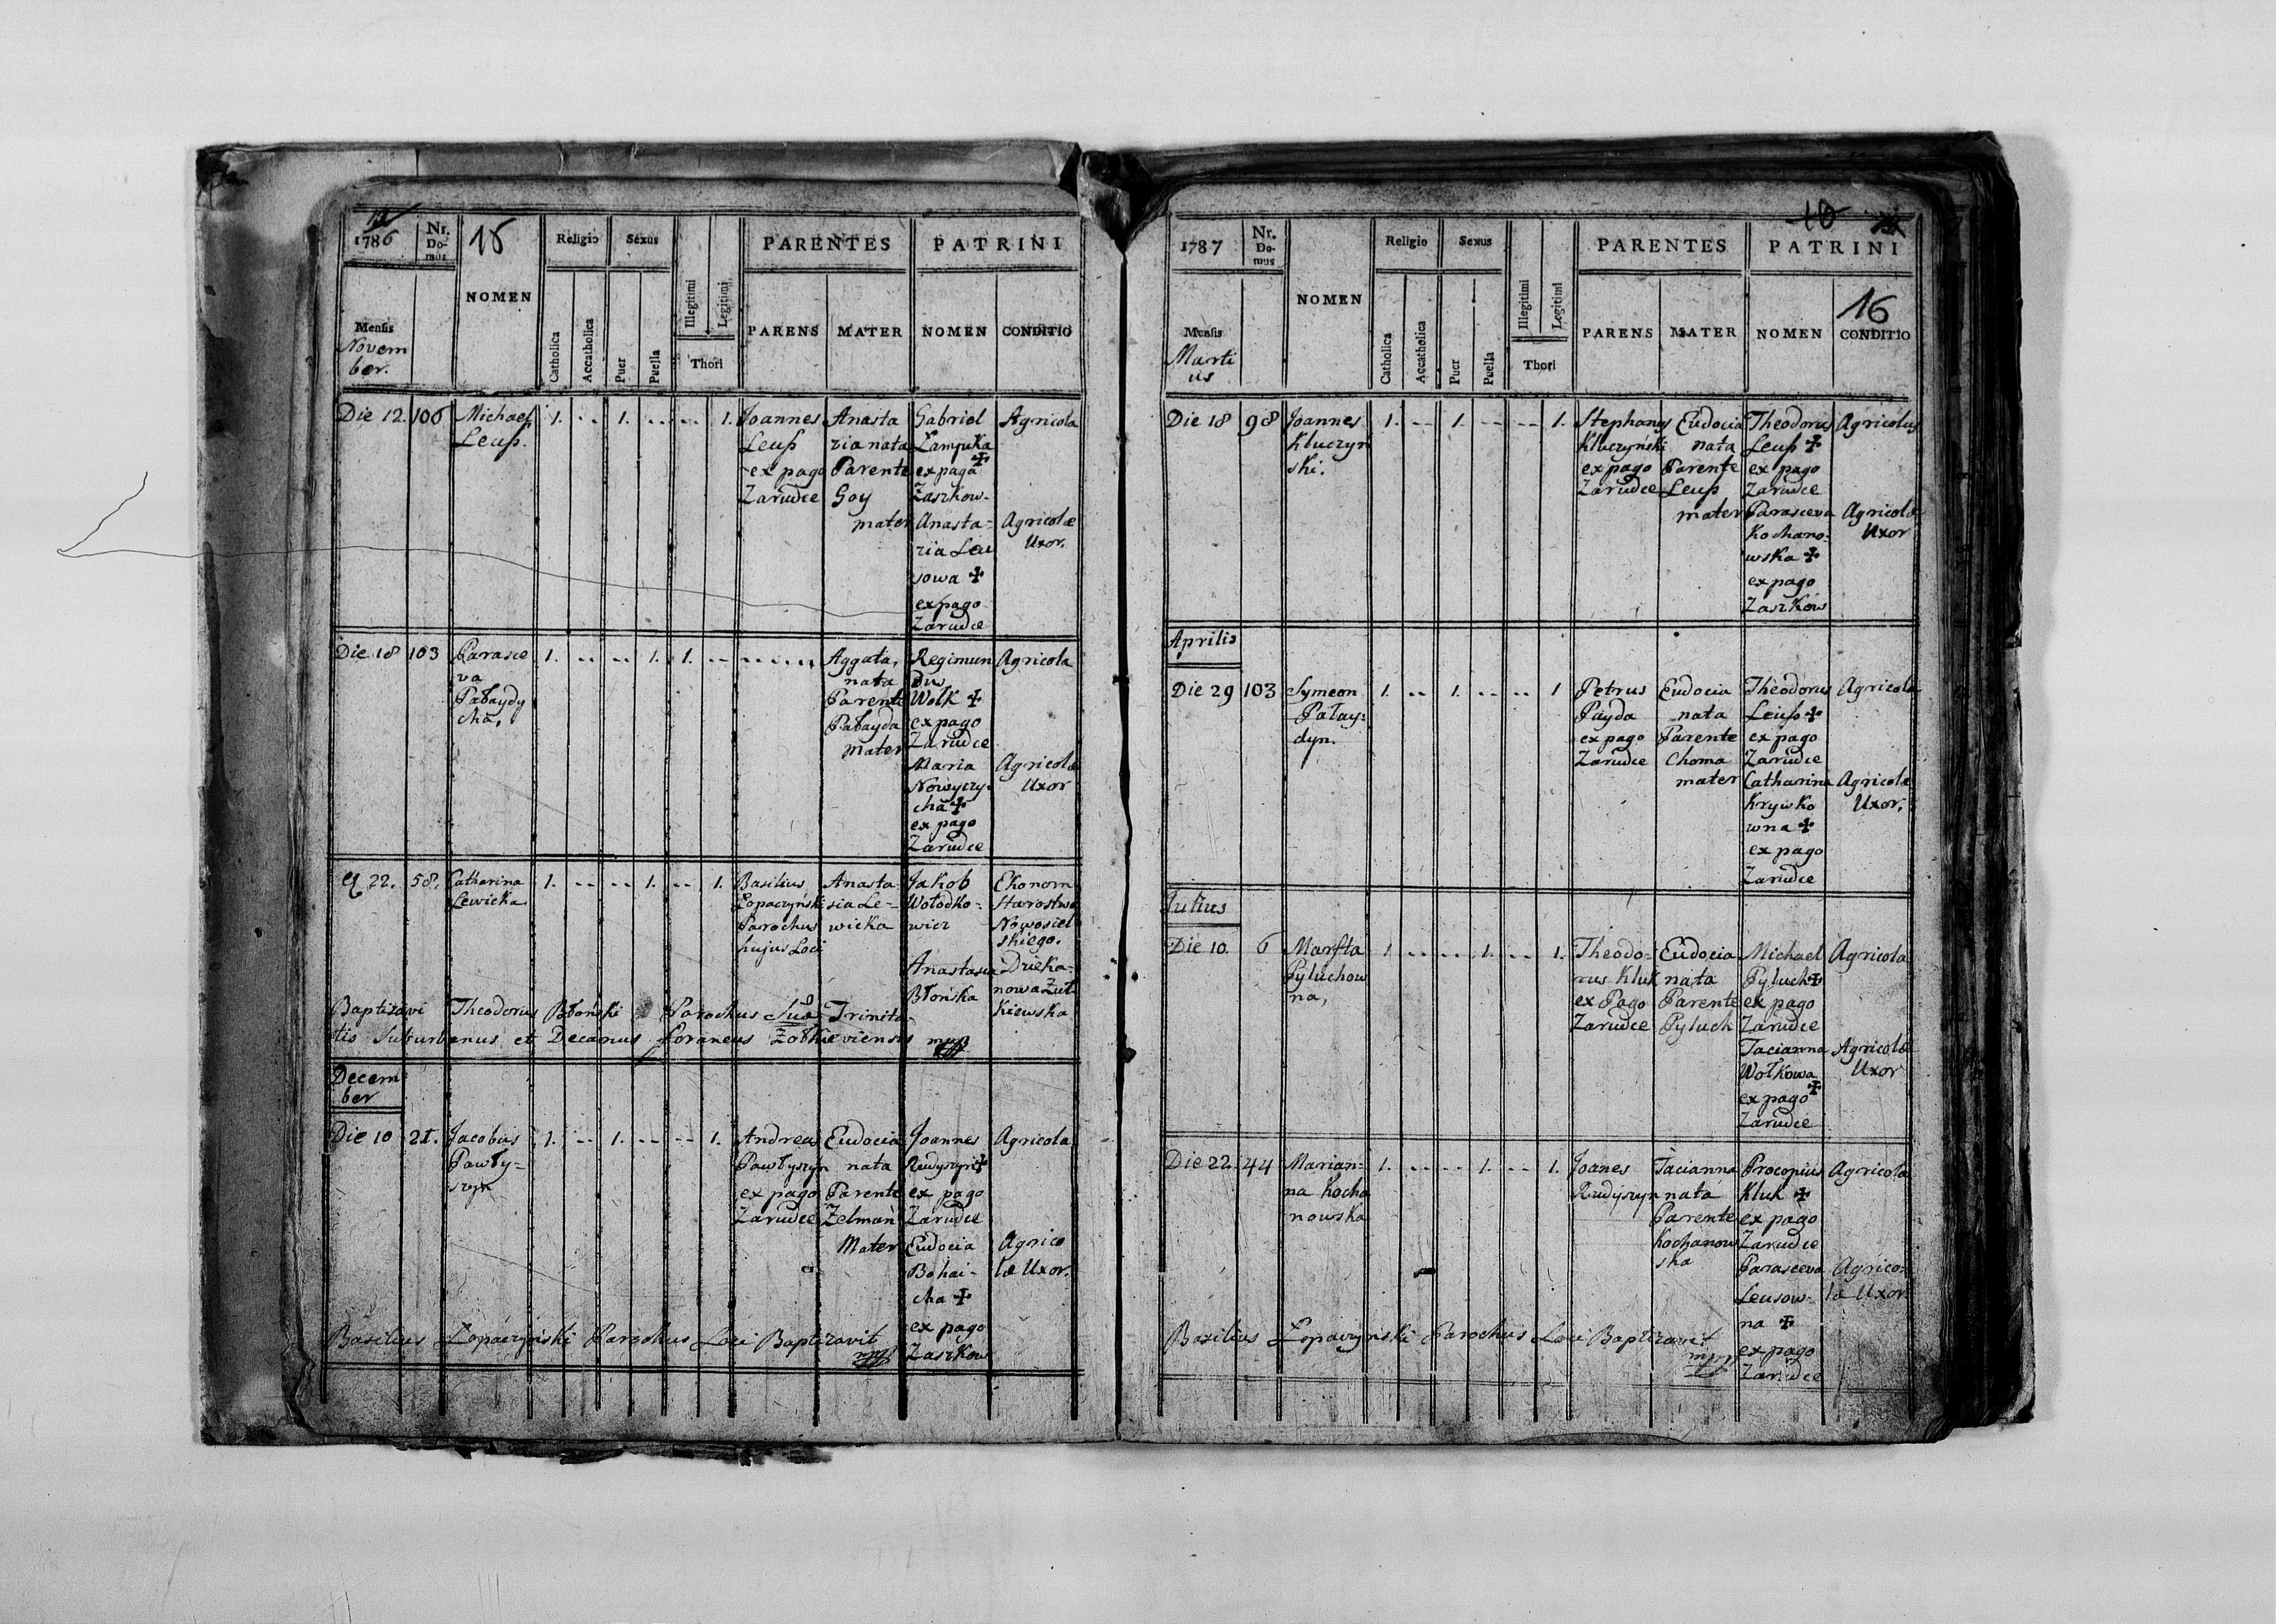 1786
Nr. Domus
15
NOMEN
Religio
Catholica
Accatholica
Sexus
Puer
Puella
Illegitimi
Legitimi
Thori
PARENTES
PARENS
MATER
PATRINI
NOMEN
CONDITIO
Mensis
Novem
ber.
Die 12.
106
Michael
Leuß.
1. .. 1. .. .. 1.
Joannes
Leuß
ex pago
Zarudce
Anasta
zia nata
Parente
Goy
mater
Gabriel
Łampika
ex pago ✠
Zaszkow-
Anasta-
zia Leu
sowa ✠
ex pago
Zarudce
Agricola
Agricolæ
Uxor.
Die 18
103
Parasce
va
Pałaydy
cha,
1. .. .. 1. 1. .. .. ..
Aggata,
nata
Parente
Pałayda
Mater
Regimun
dus
Wolk ✠
ex pago
Zarudce
Maria
Nowyczy-
cha ✠
ex pago
Zarudce
Agricola
Agricolæ
Uxor
22.
58.
Catharina
Lewicka
1. .. .. 1. .. 1.
Basilius
Łopaczyński
Parochus
hujus Loci
Anasta
sia Le-
wicka
Jakob
Wołodko-
wicz
Anastasia
Błońska
Ekonom
Starostwa
Nowosiel
skiego.
Dzieka-
nowa Żoł-
kiewska
Baptizavi Theodorus Błoński Parochus Trinita-
tis Suburbanus et Decanus foraneus Żołkieviensis mpp
Decem
ber
Die 10
21.
Jacobus
Pawły-
szyn
1. .. 1. .. .. 1.
Andreas
Pawłyszyn
ex pago
Zarudce
Eudocia
nata
Parente
Zelman
Mater
Joannes
Rudyszyn ✠
ex pago
Zarudce
Eudocia
Bohai-
cha ✠
ex pago
Zaszkow
Agricola
Agrico
læ Uxor.
Basilius Łopaczyński Parochus Loci Baptizavit
mpp
1787
Nr. Domus
NOMEN
Religio
Catholica
Accatholica
Sexus
Puer
Puella
Illegitimi
Legitimi
Thori
PARENTES
PARENS
MATER
PATRINI
NOMEN
16
CONDITIO
Mensis
Marti
us
Die 18
98
Joannes
Kluczyn
ski.
1. .. 1. .. .. 1.
Stephanus
Kluczyński
ex pago
Zarudce
Eudocia
nata
Parente
Leuß
mater
Theodorus
Leuß ✠
ex pago
Zarudce
Parasceva
Kochano-
wska ✠
ex pago
Zaszkow
Agricolus
Agricolæ
Uxor
Aprilis
Die 29
103
Symeon
Pałay-
dyn.
1. .. 1. .. .. 1
Petrus
Payda
ex pago
Zarudce
Eudocia
nata
Parente
Choma
mater
Theodorus
Leuß ✠
ex pago
Zarudce
Catharina
Krywko
wna ✠
ex pago
Zarudce
Agricola
Agricolæ
Uxor.
Julius
Die 10.
6
Marfta
Pyluchow
na,
1 .. .. 1. .. 1.
Theodo-
rus Kluk
ex Pago
Zarudce
Eudocia
nata
Parente
Pyluch
Michael
Pyluch ✠
ex pago
Zarudce
Tacianna
Wołkowa ✠
ex pago
Zarudce
Agricola
Agricolæ
Uxor
Die 22
44
Marian-
na Kocha
nowska
1. .. .. 1. .. 1.
Joanes
Rudyszyn
Tacianna
nata
Parente
Kochanow
ska
Procopius
Kluk ✠
ex pago
Zarudce
Parasceva
Leusow-
na ✠
ex pago
Zarudce
Agricola
Agrico-
læ Uxor.
Basilius Łopaczyński Parochus Loci Baptizavit
mpp